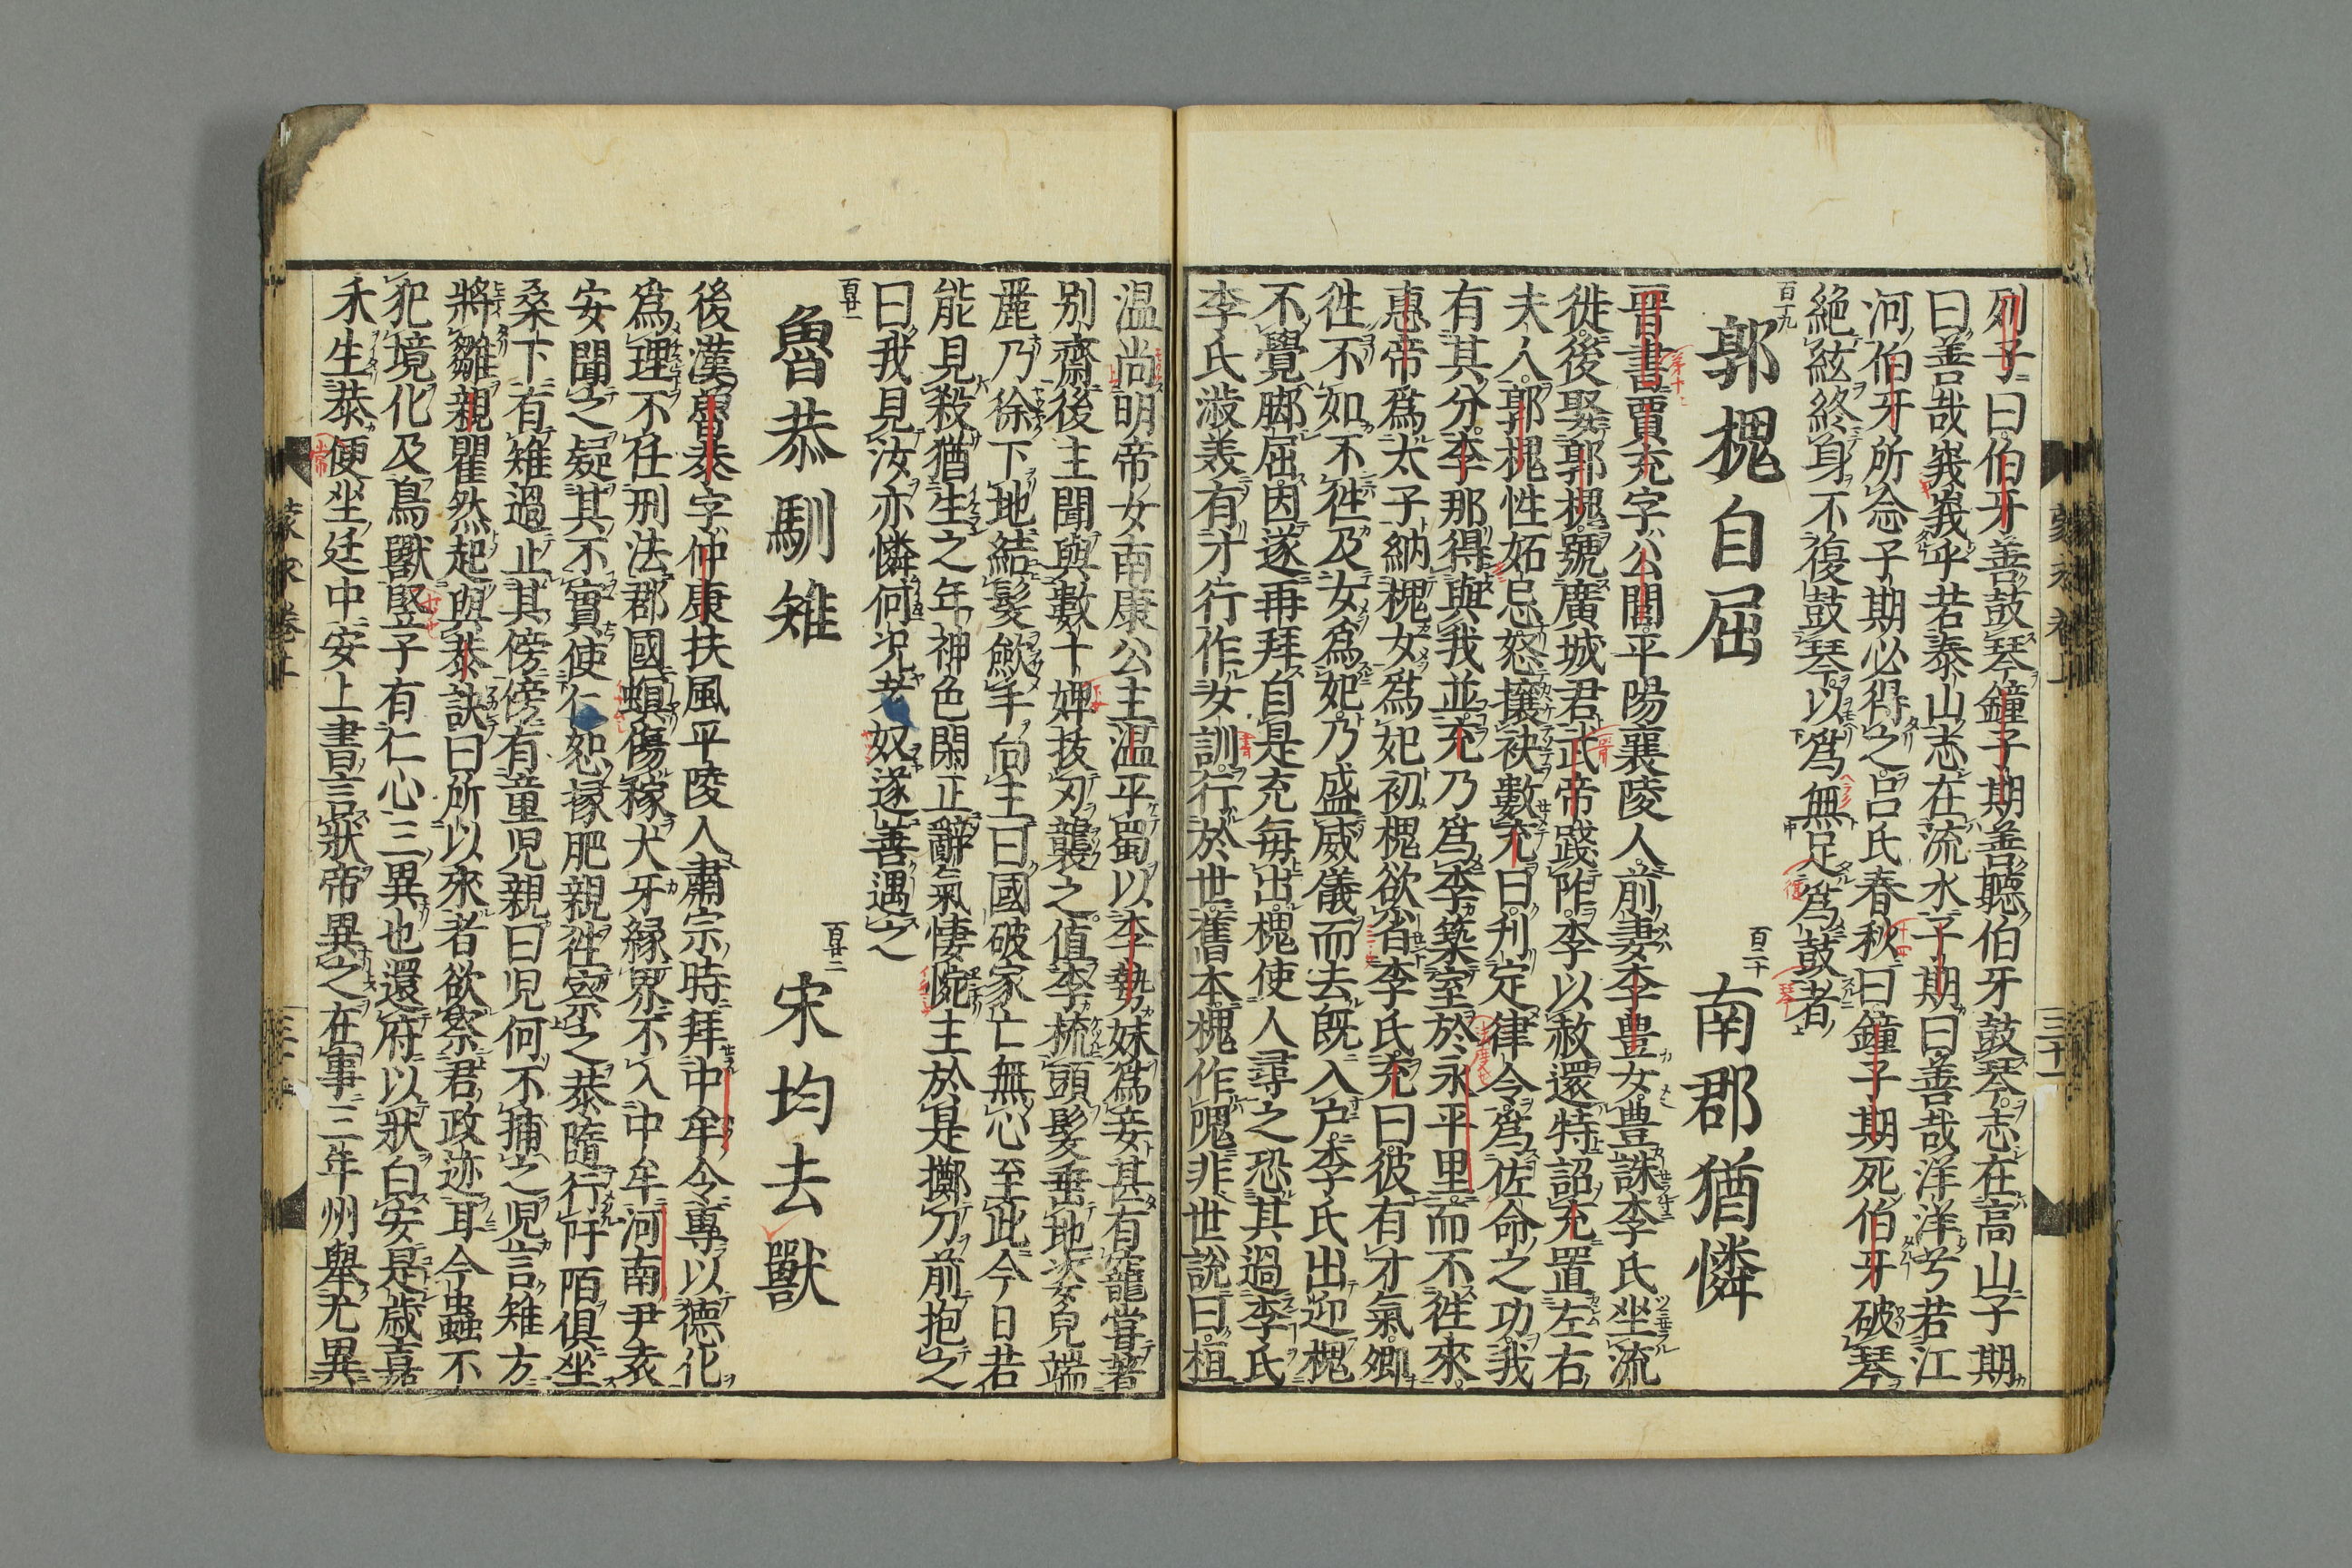 列子曰伯牙善鼓琴鐘子期善聽伯牙鼓琴志在高山子期
曰善哉峩峩乎若泰山志在流水子期曰善哉洋洋兮若江
河伯牙所念子期必得之呂氏春秋曰鐘子期死伯牙破琴
絶絃終身不復鼓琴以爲無足爲鼓者
百十九
郭槐自屈
百二十
南郡猶憐
晉書賈充字公閭平陽襄陵人前妻李豊女豊誅李氏坐流
徙後娶郭槐號廣城君武帝踐阼李以赦還特詔充置左右
夫人郭槐性妬忌怒攘袂數充曰刋定律令爲佐命之功我
有其分李那得與我並充乃爲李築室於永平里而不徃來
惠帝爲太子納槐女爲妃初槐欲省李氏充曰彼有才氣卿
徃不如不徃及女爲妃乃盛威儀而去既入户李氏出迎槐
不覺脚屈因遂再拜自是充毎出槐使人尋之恐其過李氏
李氏淑美有才行作女訓行於世舊本槐作愧非世説曰桓
蒙求卷上
三十一
温尚明帝女南康公主温平蜀以李勢妹爲妾甚有寵嘗著
別齋後主聞與數十婢抜刃襲之値李梳頭髮垂地姿皃端
麗乃徐下地結髮斂手向主曰國破家亡無心至此今日若
能見殺猶生之年神色閑正辭氣悽惋主於是擲刀前抱之
曰我見汝亦憐何况老奴遂善遇之
百廿一
魯恭馴雉
百廿二
宋均去獸
後漢魯恭字仲康扶風平陵人肅宗時拜中牟令專以德化
爲理不任刑法郡國螟傷稼犬牙縁界不入中牟河南尹袁
安聞之疑其不實使仁恕掾肥親徃察之恭隨行阡陌倶坐
桑下有雉過止其傍傍有童児親曰児何不捕之児言雉方
將雛親瞿然起與恭訣曰所以來者欲察君政迹耳今蟲不
犯境化及鳥獸竪子有仁心三異也還府以狀白安是歳嘉
禾生恭便坐廷中安上書言狀帝異之在事三年州舉尤異
蒙求卷上